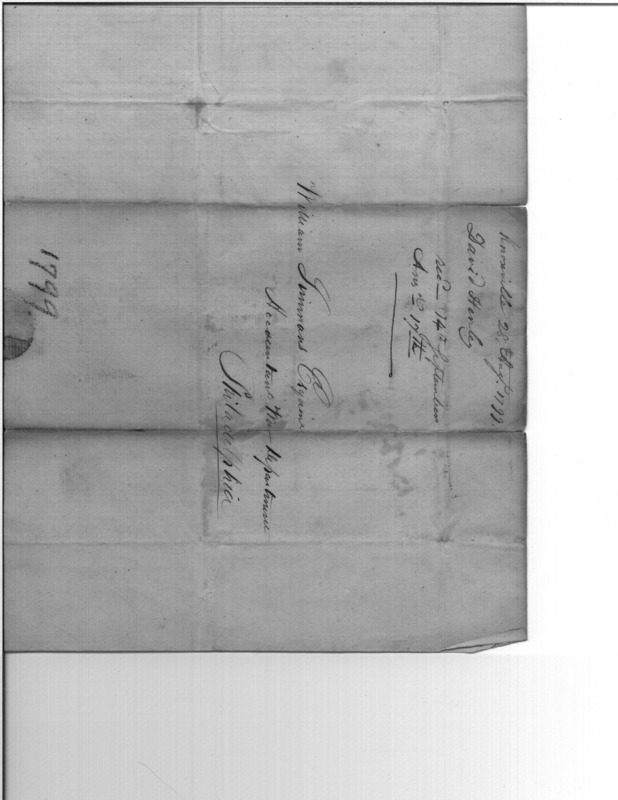 Knoxville 28. Augt. 1799.
David Henley
recd 14th September
Ansd 17th
William Simmons Esquire
Accountant War Department
Philadelphia
1799